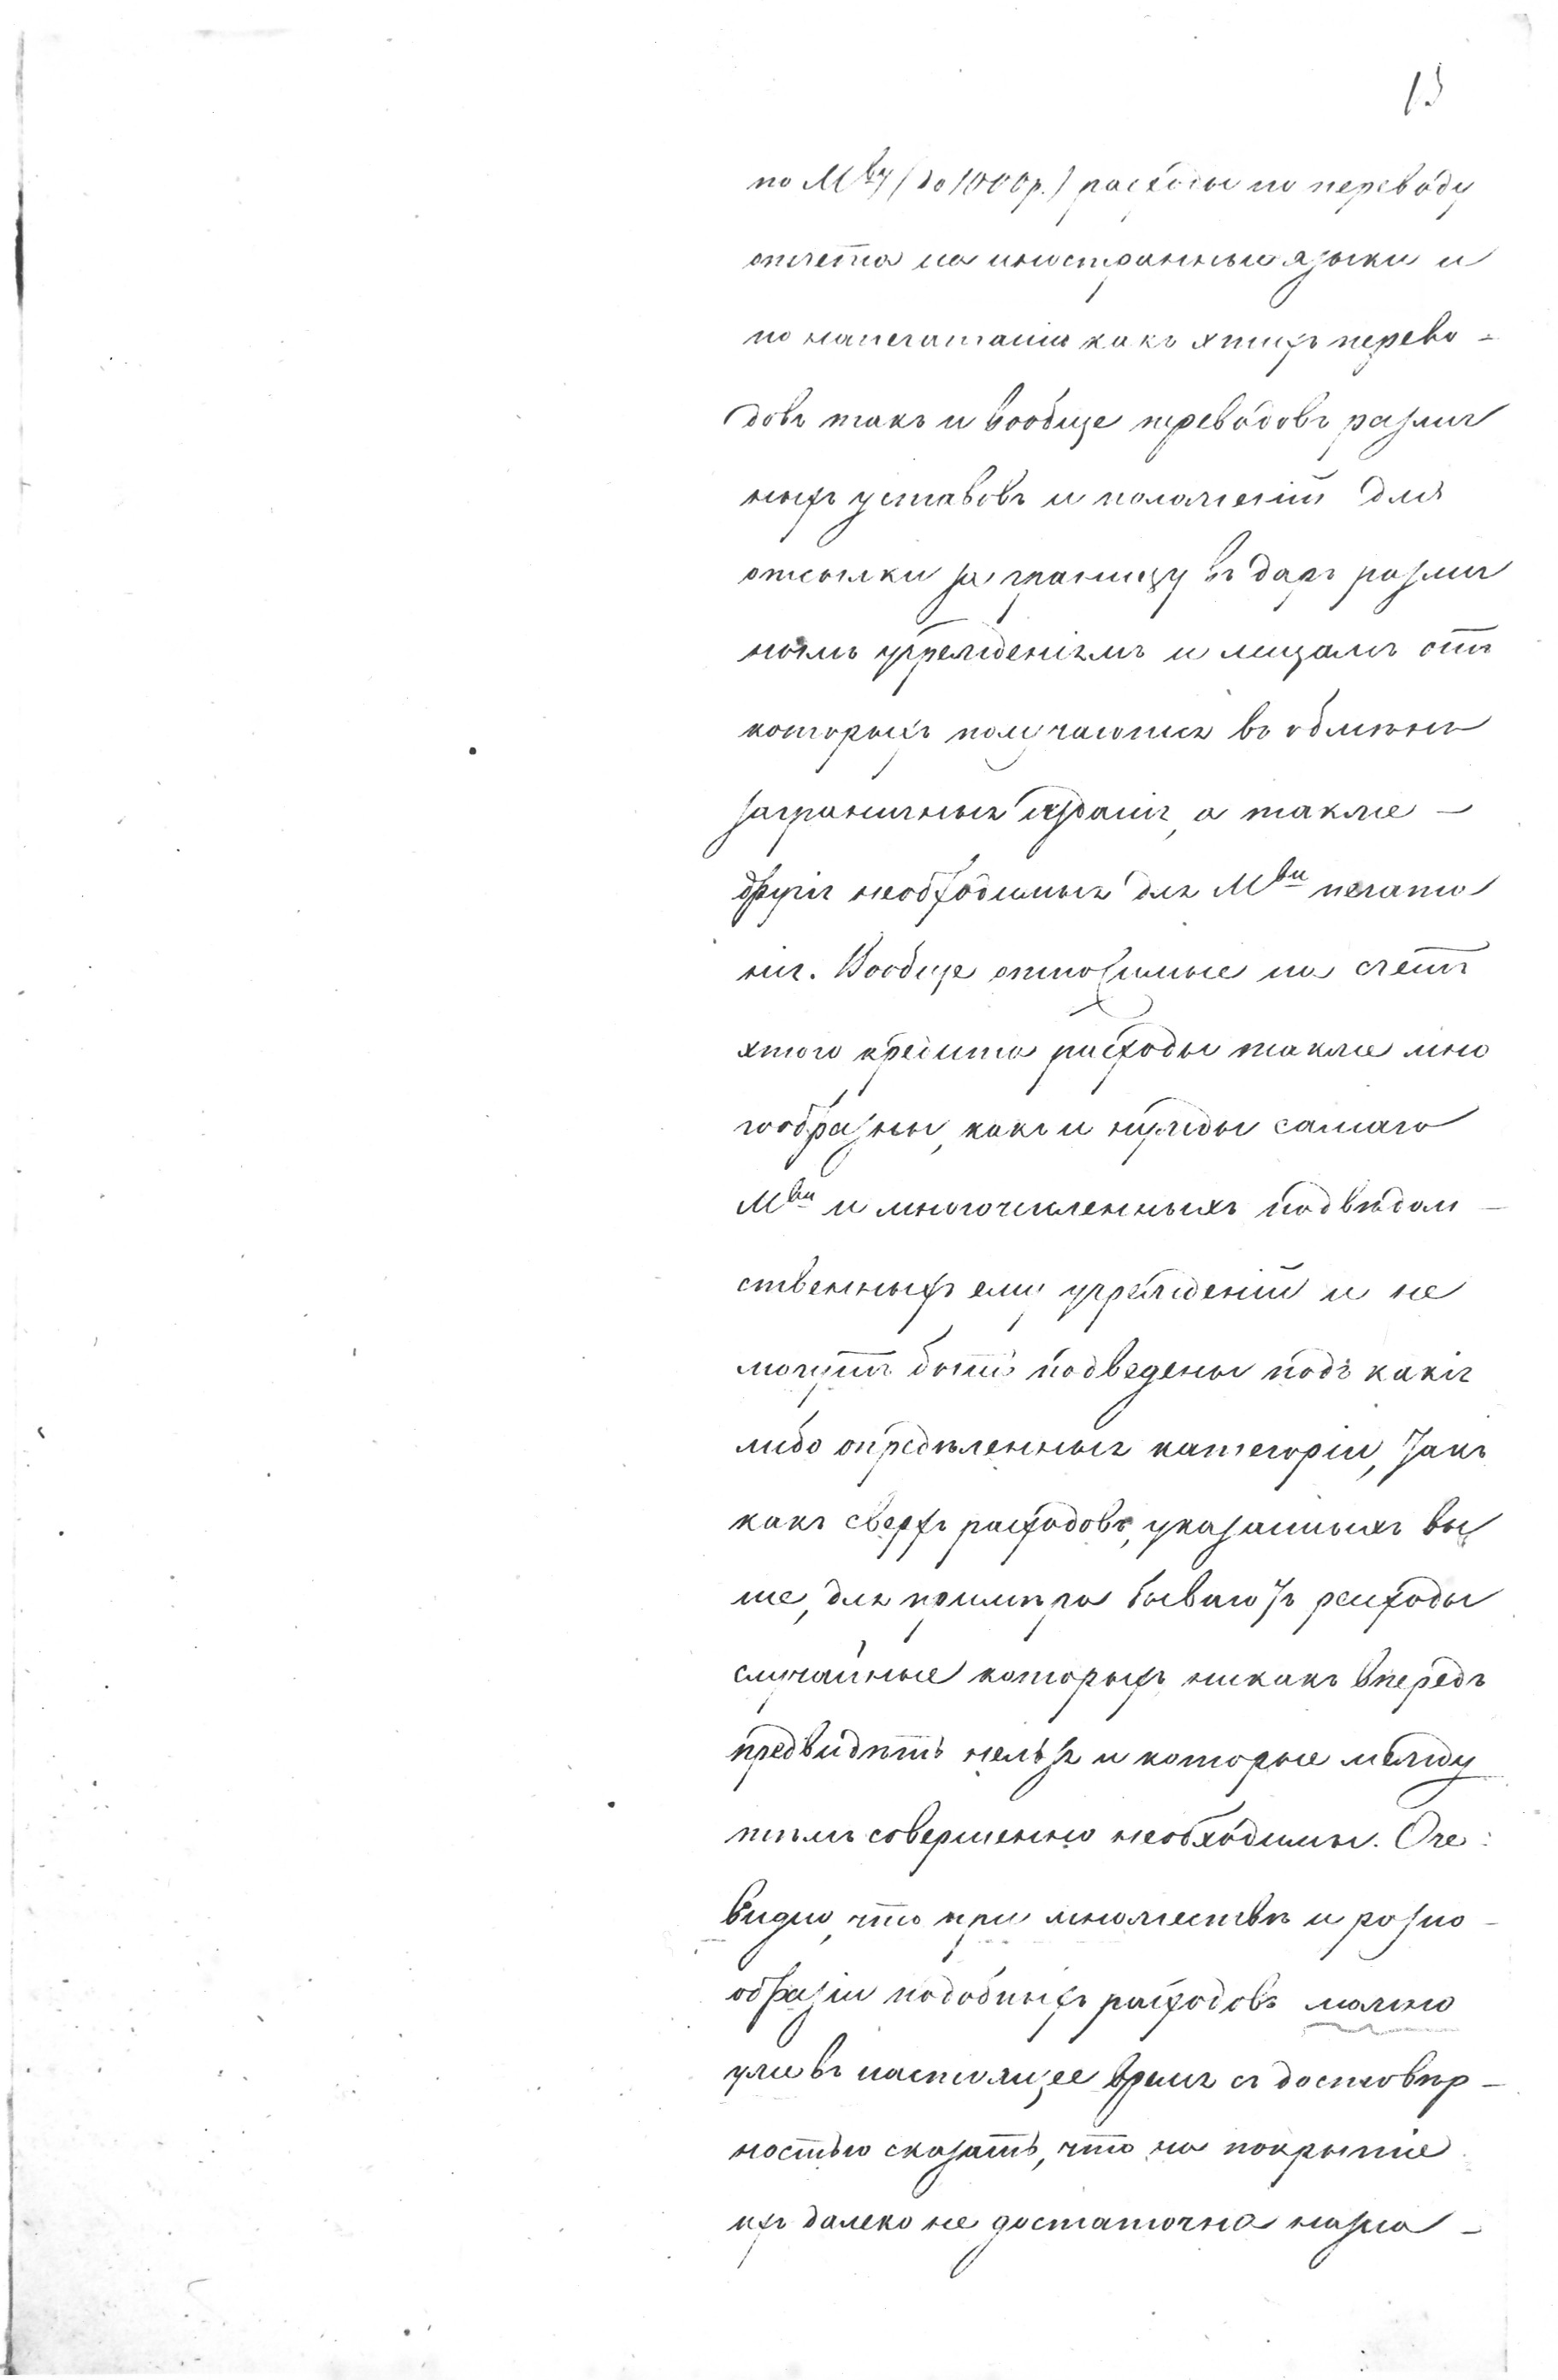 13
по Мву (до 1000 р.) расходы по переводу
отчета на иностранные языки и
по напечатанiю какъ этихъ перево-
довъ такъ и вообще переводовъ различ
ныхъ уставовъ и положенiй для
отсылки за границу въ даръ различ
нымъ учрежденiямъ и лицамъ отъ
которыхъ получаются въ обмѣнъ
заграничныя изданiя, а также -
другiя необходимыя для Мва печата
нiя. Вообще относимые на счетъ
этого кредита расходы также мно
гообразны, какъ и нужды самаго
Мва и многочисленныхъ подвѣдом-
ственныхъ ему учрежденiй и не
могутъ быть подведены подъ какiя
либо опредѣленныя категорiи, такъ
какъ сверхъ расходовъ, указанныхъ вы
ше, для примѣра бываютъ расходы
случайные которыхъ никакъ впередъ
предвидѣть нельзя и которые между
тѣмъ совершенно необходимы. Оче:
видно, что при множествѣ и разно-
образiи подобныхъ расходовъ можно
уже въ настоящее время съ достовѣр-
ностью сказать, что на покрытiе
ихъ далеко не достаточно назна-